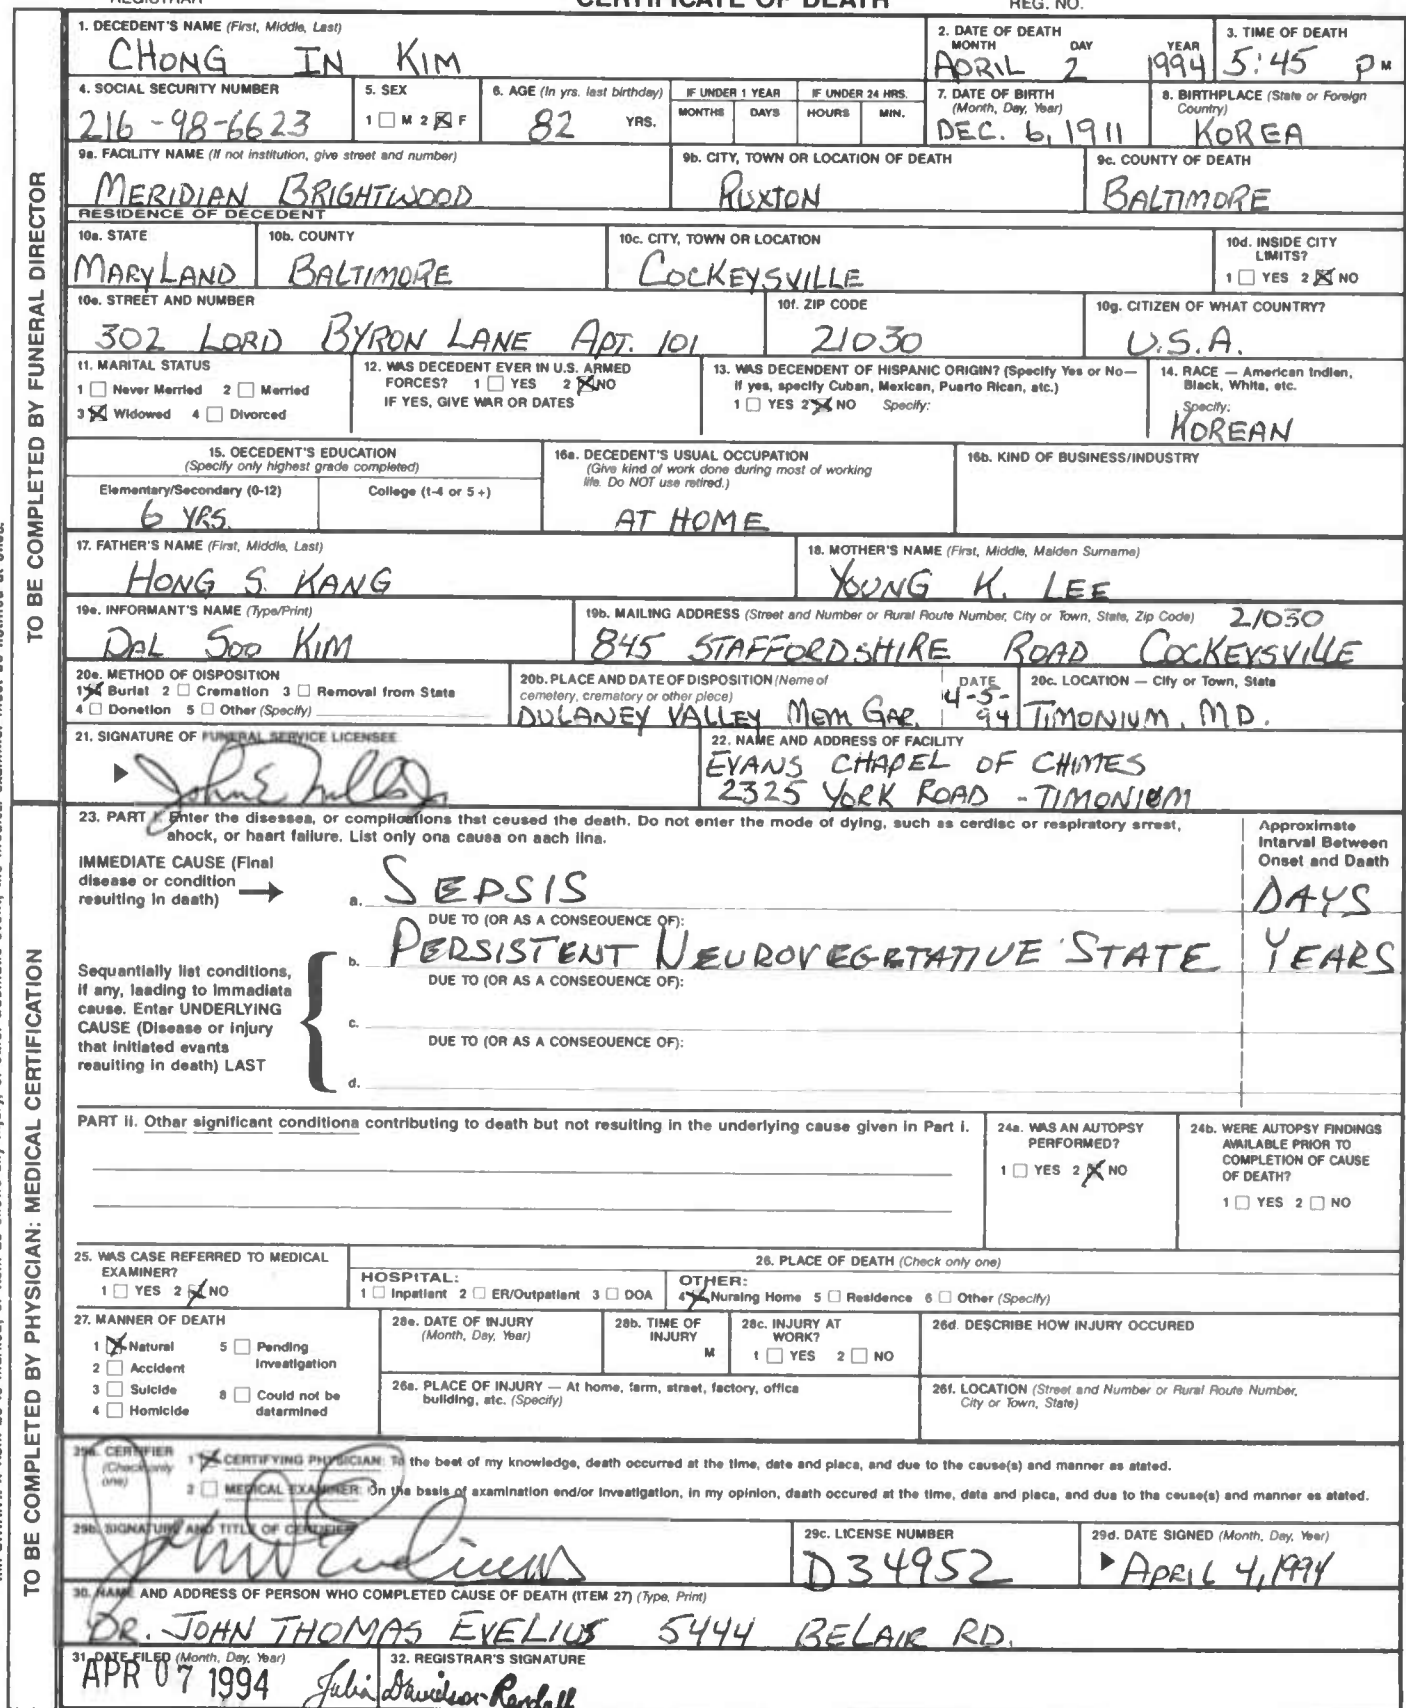 REGISTRAR CERTIFICATE OF DEATH REG. NO.
TO BE COMPLETED BY FUNERAL DIRECTOR
1. DECEDENT'S NAME (First, Middle, Last)
CHONG IN KIM
2. DATE OF DEATH
MONTH DAY YEAR
APRIL 2 1994
3. TIME OF DEATH
5:45 P M
4. SOCIAL SECURITY NUMBER
216-98-6623
5. SEX
1 ☐ M 2 ☒ F
6. AGE (In yrs. last birthday)
82 YRS.
IF UNDER 1 YEAR
MONTHS DAYS
IF UNDER 24 HRS.
HOURS MIN.
7. DATE OF BIRTH
(Month, Day, Year)
DEC. 6, 1911
8. BIRTHPLACE (State or Foreign
Country)
KOREA
9a. FACILITY NAME (If not institution, give street and number)
MERIDIAN BRIGHTWOOD
9b. CITY, TOWN OR LOCATION OF DEATH
RUXTON
9c. COUNTY OF DEATH
BALTIMORE
RESIDENCE OF DECEDENT
10a. STATE
MARYLAND
10b. COUNTY
BALTIMORE
10c. CITY, TOWN OR LOCATION
COCKEYSVILLE
10d. INSIDE CITY
LIMITS?
1 ☐ YES 2 ☒ NO
10e. STREET AND NUMBER
302 LORD BYRON LANE APT. 101
10f. ZIP CODE
21030
10g. CITIZEN OF WHAT COUNTRY?
U.S.A.
11. MARITAL STATUS
1 ☐ Never Merried 2 ☐ Merried
3 ☒ Widowed 4 ☐ Divorced
12. WAS DECEDENT EVER IN U.S. ARMED
FORCES? 1 ☐ YES 2 ☒ NO
IF YES, GIVE WAR OR DATES
13. WAS DECENDENT OF HISPANIC ORIGIN? (Specify Yes or No—
If yes, specify Cuban, Mexican, Puerto Rican, etc.)
1 ☐ YES 2 ☒ NO Specify:
14. RACE — American Indien,
Black, White, etc.
Specify:
KOREAN
15. OECEDENT'S EDUCATION
(Specify only highest grade completed)
Elementary/Secondary (0-12)
6 YRS.
College (1-4 or 5+)
16a. DECEDENT'S USUAL OCCUPATION
(Give kind of work done during most of working
life. Do NOT use retired.)
AT HOME
16b. KIND OF BUSINESS/INDUSTRY
17. FATHER'S NAME (First, Middle, Last)
HONG S. KANG
18. MOTHER'S NAME (First, Middle, Maiden Surname)
YOUNG K. LEE
19a. INFORMANT'S NAME (Type/Print)
DAL SOO KIM
19b. MAILING ADDRESS (Street and Number or Rural Route Number, City or Town, State, Zip Code) 21030
845 STAFFORDSHIRE ROAD COCKEYSVILLE
20a. METHOD OF OISPOSITION
1 ☒ Burial 2 ☐ Cremation 3 ☐ Removal from State
4 ☐ Donetion 5 ☐ Other (Specify)
20b. PLACE AND DATE OF DISPOSITION (Name of
cemetery, crematory or other place)
DULANEY VALLEY MEM GAR.
DATE
4-5-
94
20c. LOCATION — City or Town, State
TIMONIUM, MD.
21. SIGNATURE OF FUNERAL SERVICE LICENSEE
22. NAME AND ADDRESS OF FACILITY
EVANS CHAPEL OF CHIMES
2325 YORK ROAD - TIMONIUM
TO BE COMPLETED BY PHYSICIAN: MEDICAL CERTIFICATION
23. PART I. Enter the diseases, or complications that ceused the death. Do not enter the mode of dying, such as cerdiac or respiratory arrest,
ahock, or haart failure. List only ona causa on aach lina.
Approximate
Intarval Between
Onset and Daath
IMMEDIATE CAUSE (Final
disease or condition
resulting in death)
a. SEPSIS DAYS
DUE TO (OR AS A CONSEQUENCE OF):
b. PERSISTENT NEUROVEGETATIVE STATE YEARS
DUE TO (OR AS A CONSEOUENCE OF):
Sequantially list conditions,
if any, laading to immediata
cause. Enter UNDERLYING
CAUSE (Disease or injury
that initiated evants
reaulting in death) LAST
c.
DUE TO (OR AS A CONSEOUENCE OF):
d.
PART II. Other significant conditiona contributing to death but not resulting in the underlying cause given in Part I.
24a. WAS AN AUTOPSY
PERFORMED?
1 ☐ YES 2 ☒ NO
24b. WERE AUTOPSY FINDINGS
AVAILABLE PRIOR TO
COMPLETION OF CAUSE
OF DEATH?
1 ☐ YES 2 ☐ NO
25. WAS CASE REFERRED TO MEDICAL
EXAMINER?
1 ☐ YES 2 ☒ NO
26. PLACE OF DEATH (Check only one)
HOSPITAL:
1 ☐ Inpatient 2 ☐ ER/Outpatient 3 ☐ DOA
OTHER:
4 ☒ Nursing Home 5 ☐ Residence 6 ☐ Other (Specify)
27. MANNER OF DEATH
1 ☒ Natural 5 ☐ Pending
Investigation
2 ☐ Accident
3 ☐ Suicide 8 ☐ Could not be
datarmined
4 ☐ Homicide
28a. DATE OF INJURY
(Month, Day, Year)
28b. TIME OF
INJURY
M
28c. INJURY AT
WORK?
1 ☐ YES 2 ☐ NO
26d. DESCRIBE HOW INJURY OCCURED
26a. PLACE OF INJURY — At home, farm, street, factory, offica
building, atc. (Specify)
26f. LOCATION (Street and Number or Rural Route Number,
City or Town, State)
29a. CERTIFIER
(Check only
one)
1 ☒ CERTIFYING PHYSICIAN: To the best of my knowledge, death occurred at the time, date and placa, and due to the cause(s) and manner as atated.
2 ☐ MEDICAL EXAMINER: On the basis of axamination end/or Investigation, in my opinion, daath occured at the time, data and placa, and due to tha ceuse(s) and manner es atated.
29b. SIGNATURE AND TITLE OF CERTIFIER
29c. LICENSE NUMBER
D34952
29d. DATE SIGNED (Month, Day, Year)
APRIL 4, 1994
30. NAME AND ADDRESS OF PERSON WHO COMPLETED CAUSE OF DEATH (ITEM 27) (Type, Print)
DR. JOHN THOMAS EVELIUS 5444 BELAIR RD.
31. DATE FILED (Month, Day, Year)
APR 07 1994
32. REGISTRAR'S SIGNATURE
Julia Davidson-Randall